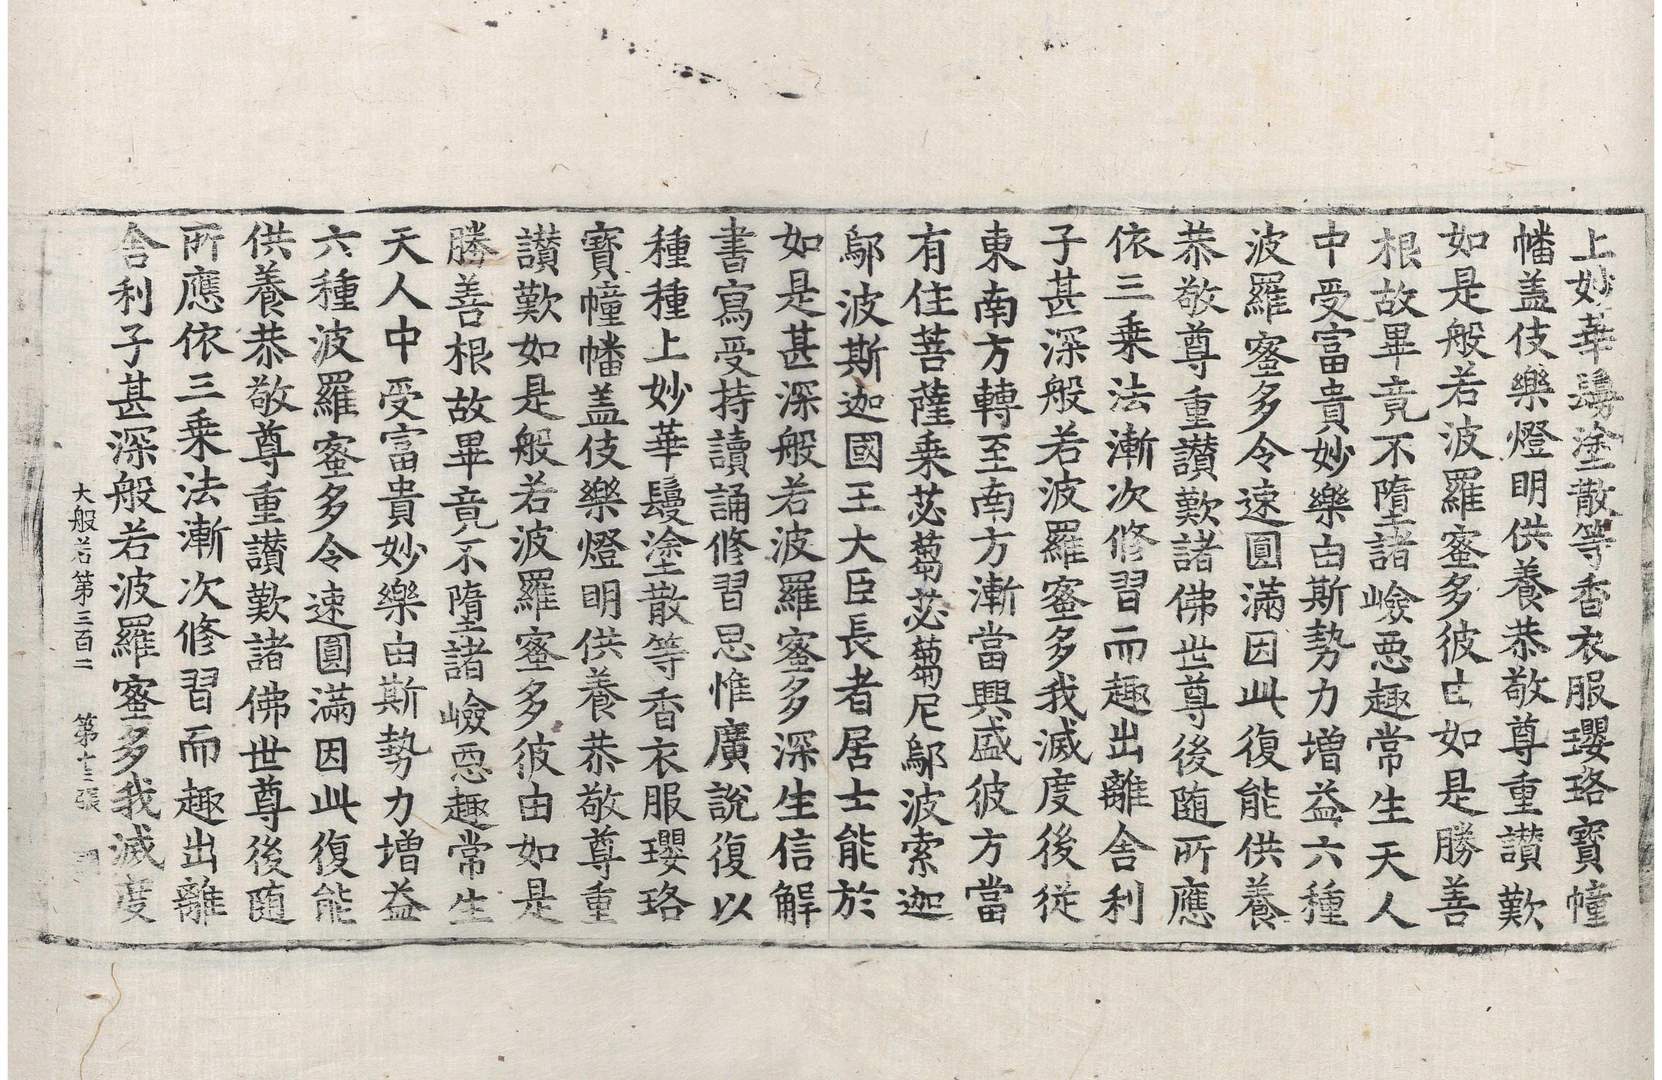 上妙華鬘塗散等香衣服瓔珞寶幢
幡盖伎樂燈明供養恭敬尊重讃歎
如是般若波羅蜜多彼由如是勝善
根故畢竟不墮諸嶮惡趣常生天人
中受富貴妙樂由斯勢力增益六種
波羅蜜多令速圓滿因此復能供養
恭敬尊重讃歎諸佛世尊後隨所應
依三乗法漸次修習而趣出離舍利
子甚深般若波羅蜜多我滅度後從
東南方轉至南方漸當興盛彼方當
有住菩薩乗苾蒭苾蒭尼鄔波索迦
鄔波斯迦國王大臣長者居士能於
如是甚深般若波羅蜜多深生信解
書寫受持讀誦修習思惟廣說復以
種種上妙華鬘塗散等香衣服瓔珞
寶幢幡盖伎樂燈明供養恭敬尊重
讃歎如是般若波羅蜜多彼由如是
勝善根故畢竟不墮諸嶮惡趣常生
天人中受富貴妙樂由斯勢力增益
六種波羅蜜多令速圓滿因此復能
供養恭敬尊重讃歎諸佛世尊後隨
所應依三乗法漸次修習而趣出離
舍利子甚深般若波羅蜜多我滅度
大般若第三百二 第十三張